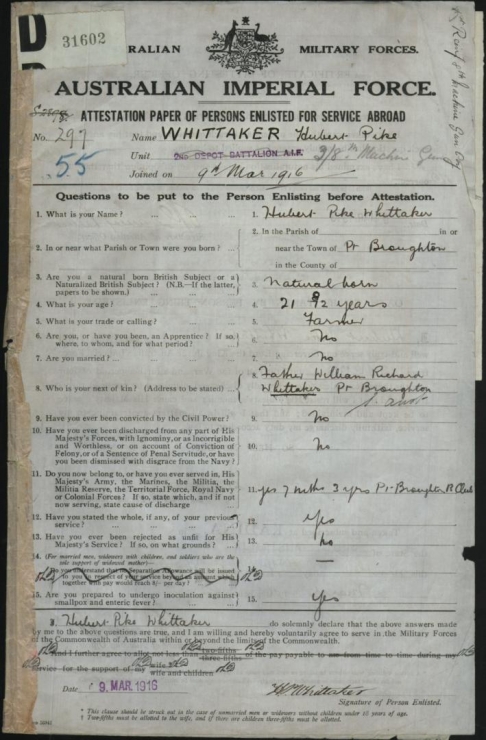 31602
RALIAN MILITARY FORCES.
AUSTRALIAN IMPERIAL FORCE.
ATTESTATION PAPER OF PERSONS ENLISTED FOR SERVICE ABROAD
No. 297 Name WHITTAKER Hubert Pike
55 Unit 2ND DEPOT BATTALION A.I.F. 3/8th Machine Gun
Joined on 9th Mar 1916
Questions to be put to the Person Enlisting before Attestation.
1. What is your Name? ... 1. Hubert Pike Whittaker
2. In or near what Parish or Town were you born? ... 2. In the Parish of in or
near the Town of Pt Broughton
in the County of
3. Are you a natural born British Subject or a
Naturalized British Subject? (N.B.—If the latter,
papers to be shown.) 3. Natural born
4. What is your age? ... 4. 21 9/12 years
5. What is your trade or calling? ... 5. Farmer
6. Are you, or have you been, an Apprentice? If so,
where, to whom, and for what period? ... 6. No
7. Are you married? ... 7. No
8. Who is your next of kin? (Address to be stated) ... 8. Father William Richard
Whittaker Pt Broughton
S. Aust
9. Have you ever been convicted by the Civil Power? 9. No
10. Have you ever been discharged from any part of His
Majesty's Forces, with Ignominy, or as Incorrigible
and Worthless, or on account of Conviction of
Felony, or of a Sentence of Penal Servitude, or have
you been dismissed with disgrace from the Navy? 10. No
11. Do you now belong to, or have you ever served in, His
Majesty's Army, the Marines, the Militia, the
Militia Reserve, the Territorial Force, Royal Navy
or Colonial Forces? If so, state which, and if not
now serving, state cause of discharge 11. yes 7 mths 3 yrs Pt-Broughton R. Club
12. Have you stated the whole, if any, of your previous
service? ... 12. Yes
13. Have you ever been rejected as unfit for His
Majesty's Service? If so, on what grounds? ... 13. No
14. (For married men, widowers with children, and soldiers who are the
sole support of widowed mother)—
Do you understand that no Separation Allowance will be issued
to you in respect of your service beyond an amount which
together with pay would reach 8/- per day?
15. Are you prepared to undergo inoculation against
smallpox and enteric fever? 15. Yes
I, Hubert Pike Whittaker do solemnly declare that the above answers made
by me to the above questions are true, and I am willing and hereby voluntarily agree to serve in the Military Forces
of the Commonwealth of Australia within or beyond the limits of the Commonwealth.
And I further agree to allot not less than two-fifths three-fifths of the pay payable to me from time to time during my
service for the support of my wife
wife and children
Date 9. MAR. 1916 H P Whittaker
Signature of Person Enlisted.
* This clause should be struck out in the case of unmarried men or widowers without children under 18 years of age.
† Two-fifths must be allotted to the wife, and if there are children three-fifths must be allotted.